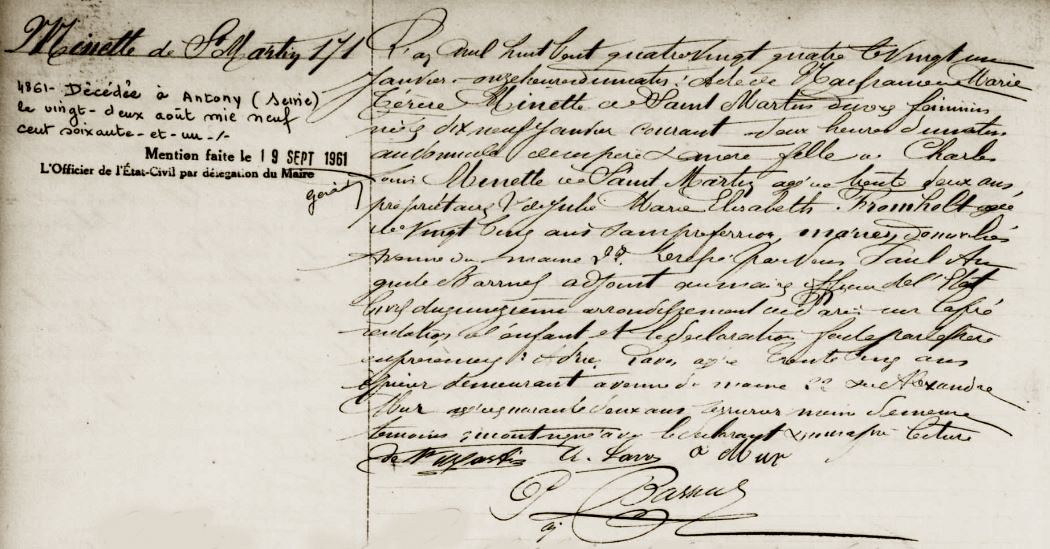 Minette de St Martin 171
4861- Décédée à Antony (Seine)
le vingt-deux août mil neuf
cent soixante-et-un -/-
Mention faite le 19 SEPT 1961
L'Officier de l'État-Civil par délégation du Maire
L'an mil huit cent quatre vingt quatre le vingt un
Janvier onze heures du matin; Acte de Naissance Marie
Térèse Minette de Saint Martin du sexe féminin
née le dix neuf Janvier courant deux heures du matin
au domicile de ses père & mère fille de Charles
Louis Minette de Saint Martin agé de trente deux ans,
propriétaire & de Julie Marie Elisabeth Fromholt agée
de vingt cinq ans sans profession, mariés, domiciliés
Avenue du maine Dressé par Nous Paul Au
guste adjoint au maire officier de l'Etat
Civil du quinzième arrondissement de Paris sur la pré
sentation de l'enfant et la déclaration faite par le père
en présence de agé de trente cinq ans
épicier demeurant avenue du maine & de Alexandre
Mur agé de quarante deux ans serrurier même demeure
témoins qui ont signé avec le déclarant & nous après lecture
de St Martin a Mur
P
aj